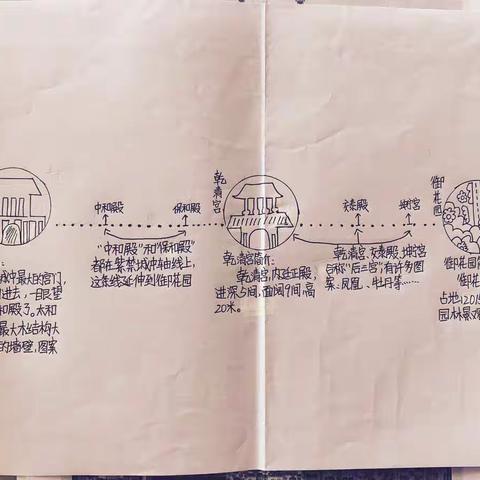 中和殿
保和殿
乾清宫
交泰殿
坤宁宫
御花园
城中最大的宫门,
进去,一眼望
和殿了。太和
最大木结构大
的墙壁,图案
“中和殿”和“保和殿”
都在紫禁城中轴线上,
这条线延伸到御花园
乾清宫简介:
乾清宫,内廷正殿,
进深5间,面阔9间,高
20米。
乾清宫、交泰殿、坤宁宫
合称“后三宫”,有许多图
案:凤凰、牡丹等……
御花园简
御花
占地12015
园林景观